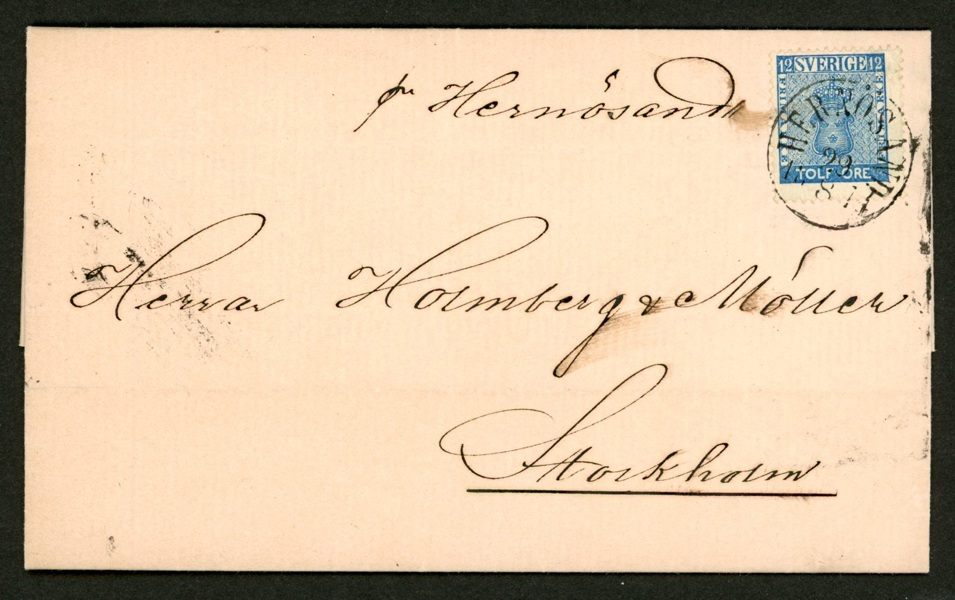 pr Hernösand
12 SVERIGE 12
TOLF ÖRE
HERNÖSAND
Herrar Holmberg & Möller
Stockholm